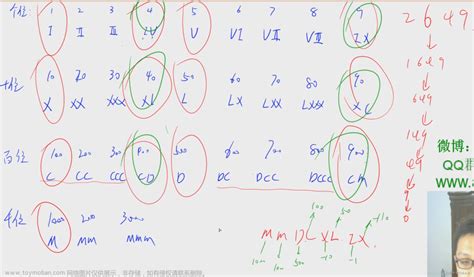 个位 1 2 3 4 5 6 7 8 9
I II III IV V VI VII VIII IX
十位 10 20 30 40 50 60 70 80 90
X XX XXX XL L LX LXX LXXX XC
百位 100 200 300 400 500 600 700 800 900
C CC CCC CD D DC DCC DCCC CM
千位 1000 2000 3000
M MM MMM
2649
1649
649
149
49
9
0
100 50 10
MM DC XL IX
1000 1000 500 -10 -1
微博:
QQ群
www.
www.toymoban.com 网络图片仅供展示,非存储,如有侵权请联系删除。